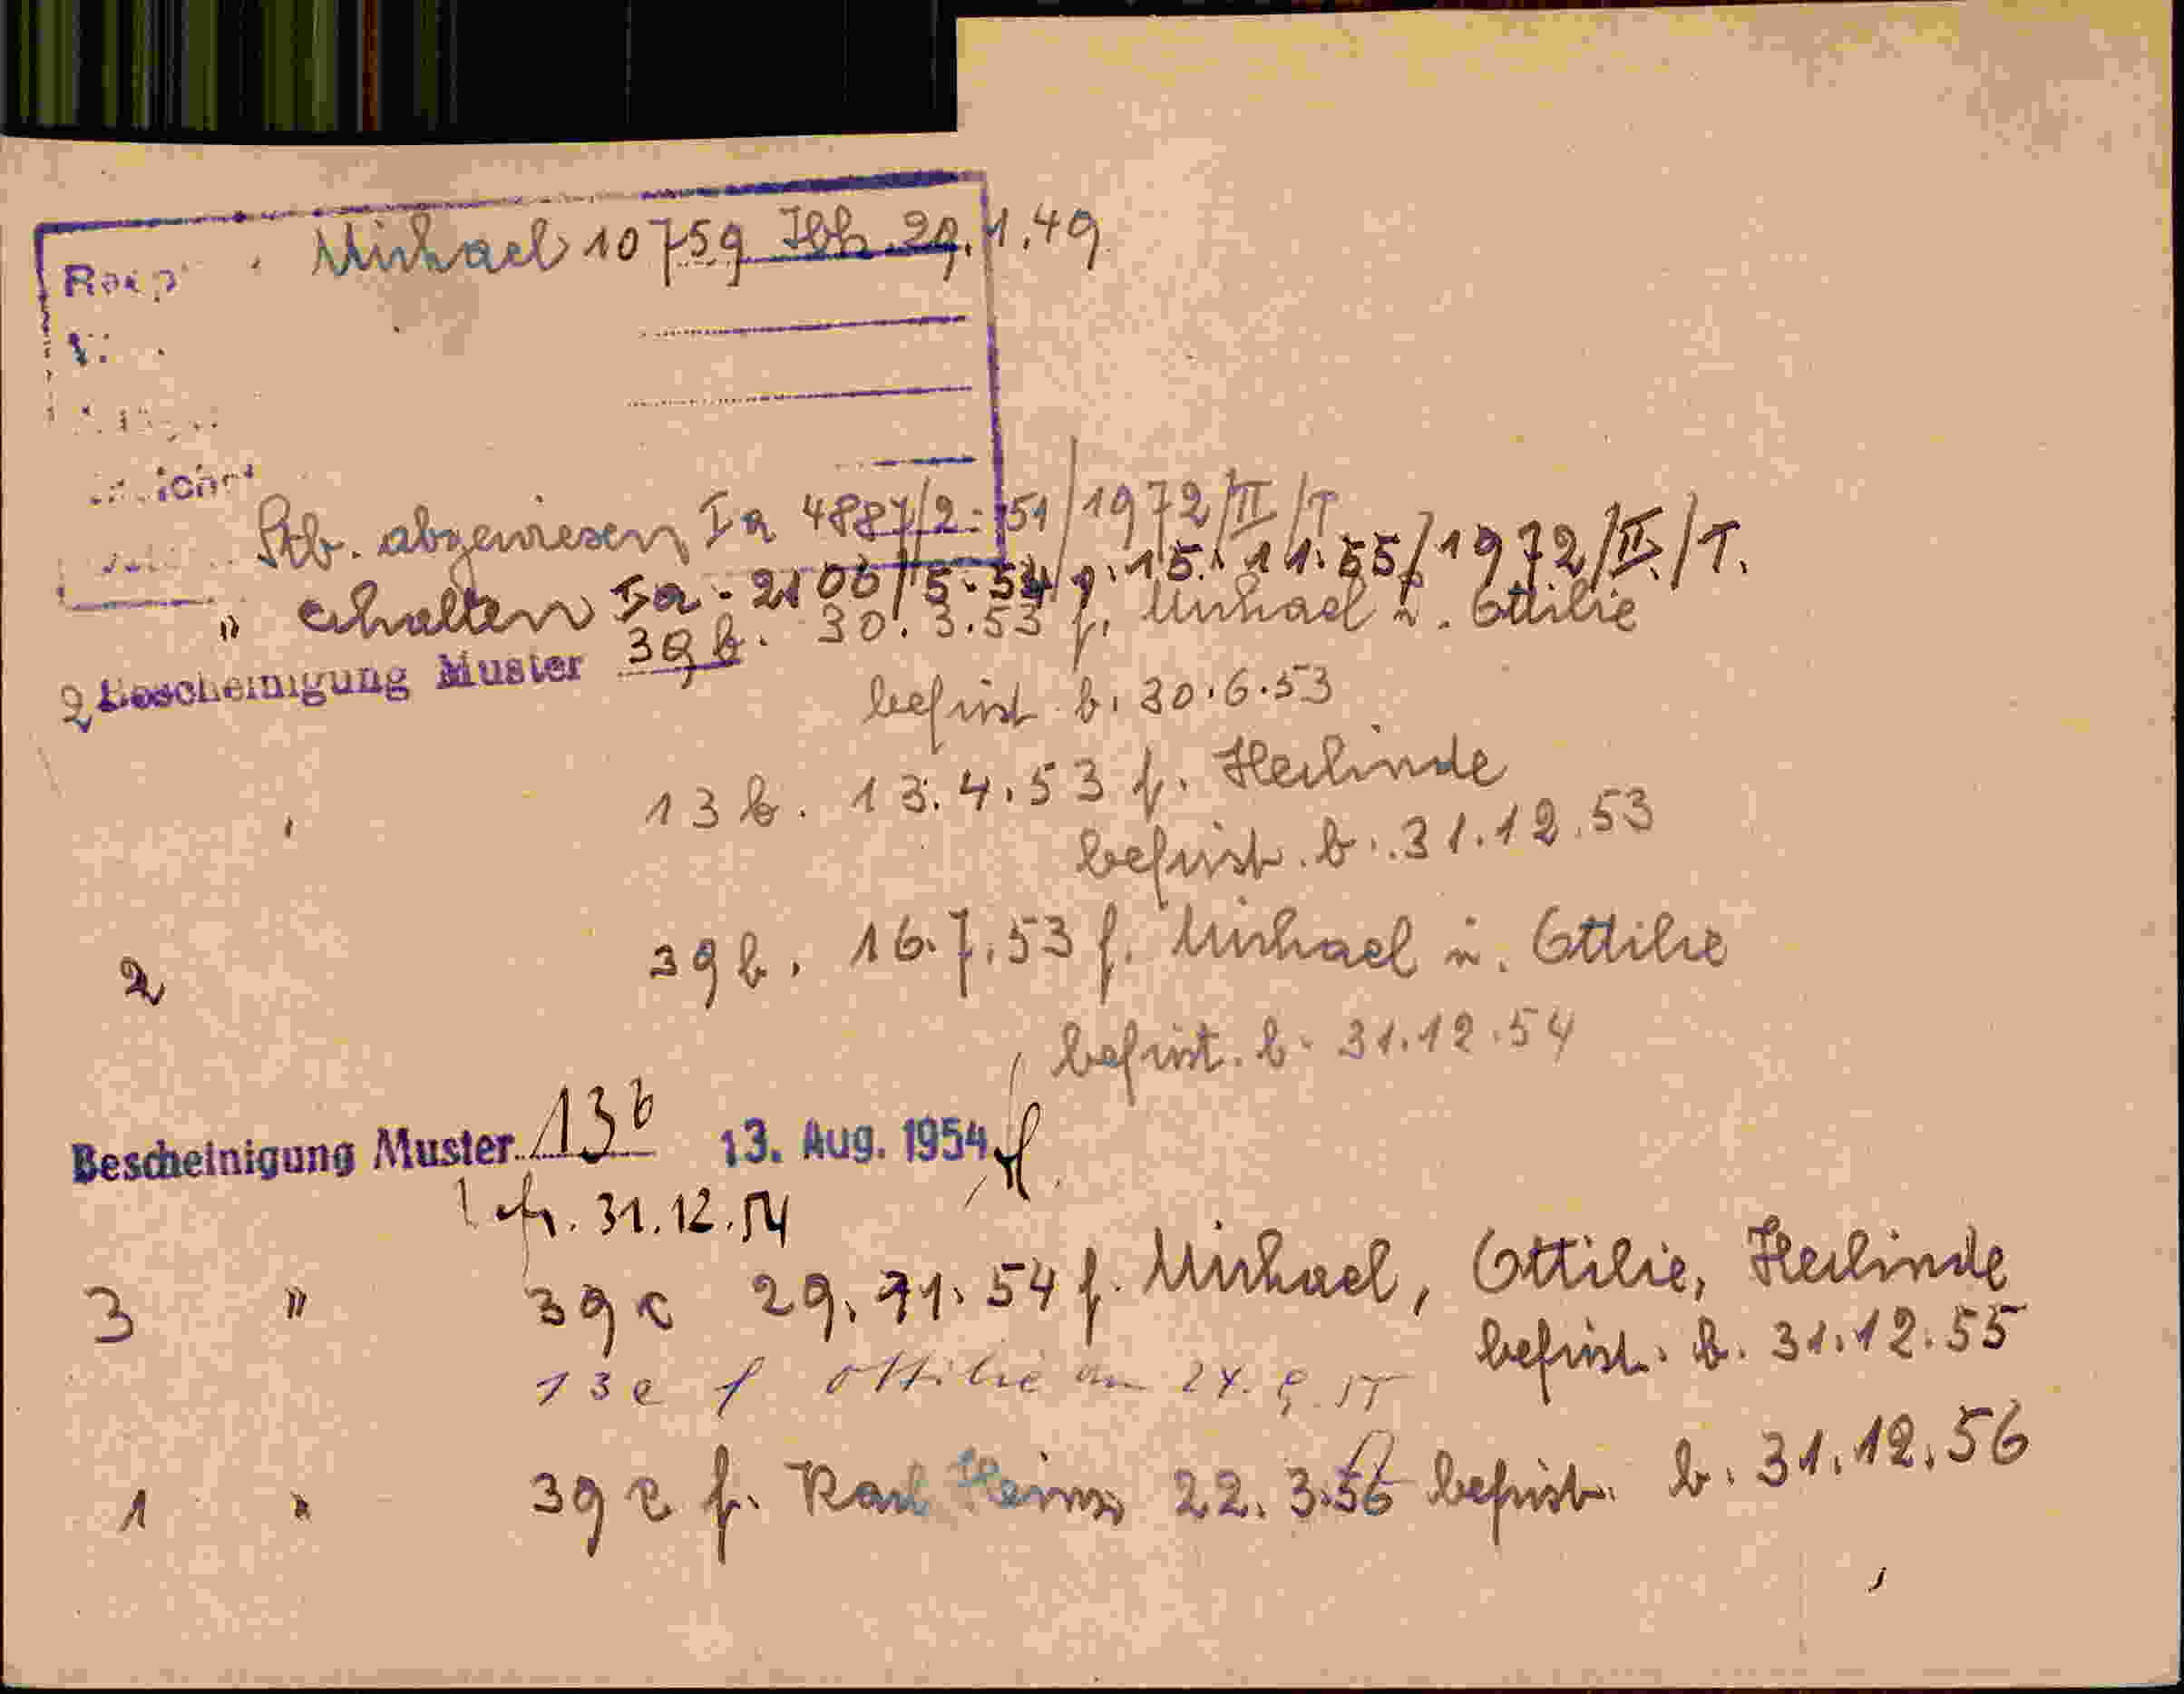 Michael 10759 Hbh. 29.1.49
Stb. abgewiesen Ia 4887/2-51/1972/II/T
" erhalten Ia - 2106/5-54 v. 15.11.55/1972/II/T.
2 Bescheinigung Muster 39 b. 30.3.53 f. Michael u. Ottilie
befrist. b. 30.6.53
13 b. 13.4.53 f. Herlinde
befrist. b. 31.12.53
2 39 b. 16.7.53 f. Michael u. Ottilie
befrist. b. 31.12.54
Bescheinigung Muster 13 b 13. Aug. 1954
befr. 31.12.54
3 " 39 c 29.11.54 f. Michael, Ottilie, Herlinde
befrist. b. 31.12.55
13 e f Ottilie am
1 " 39 c f. Karl Heinz 22.3.56 befrist. b. 31.12.56